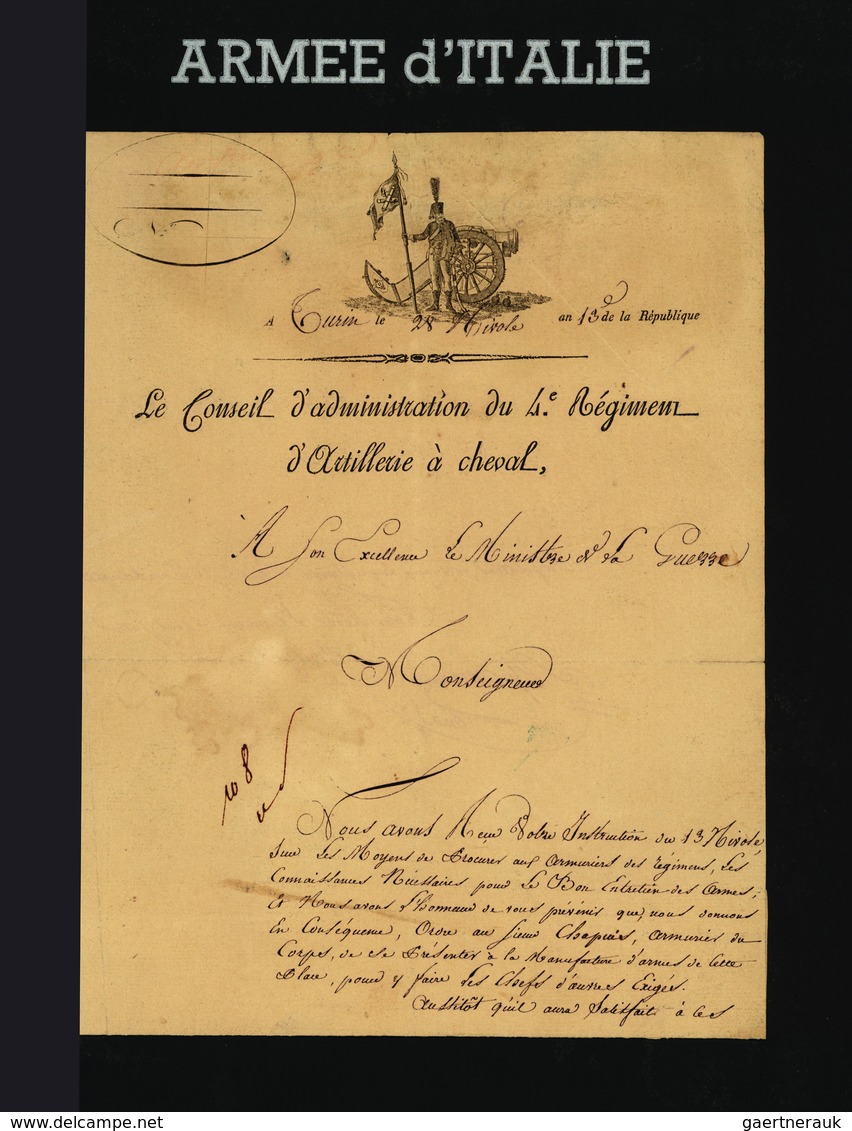 ARMEE d'ITALIE
A Turin le 28 Nivose an 13e de la République
Le Conseil d'administration du 4.e Régiment
d'Artillerie à cheval,
A Son Excellence le Ministre de la Guerre
Monseigneur
108
Nous avons Recu Votre Instruction du 13 Nivose
Sur Les Moyens de Procurer aux armuriers des régimens, Les
Connaissances Nécessaires pour Le Bon Entretien des armes;
Et Nous avons l'honneur de vous prévenir que, nous donnons
En Conséquence, Ordre au Sieur Chapuis, armurier du
Corps, de se Présenter à la Manufacture d'armes de Cette
Place, pour y faire les Chefs d'œuvres Exigés.
Aussitôt qu'il aura Satisfait à ces
www.delcampe.net
gaertnerauk